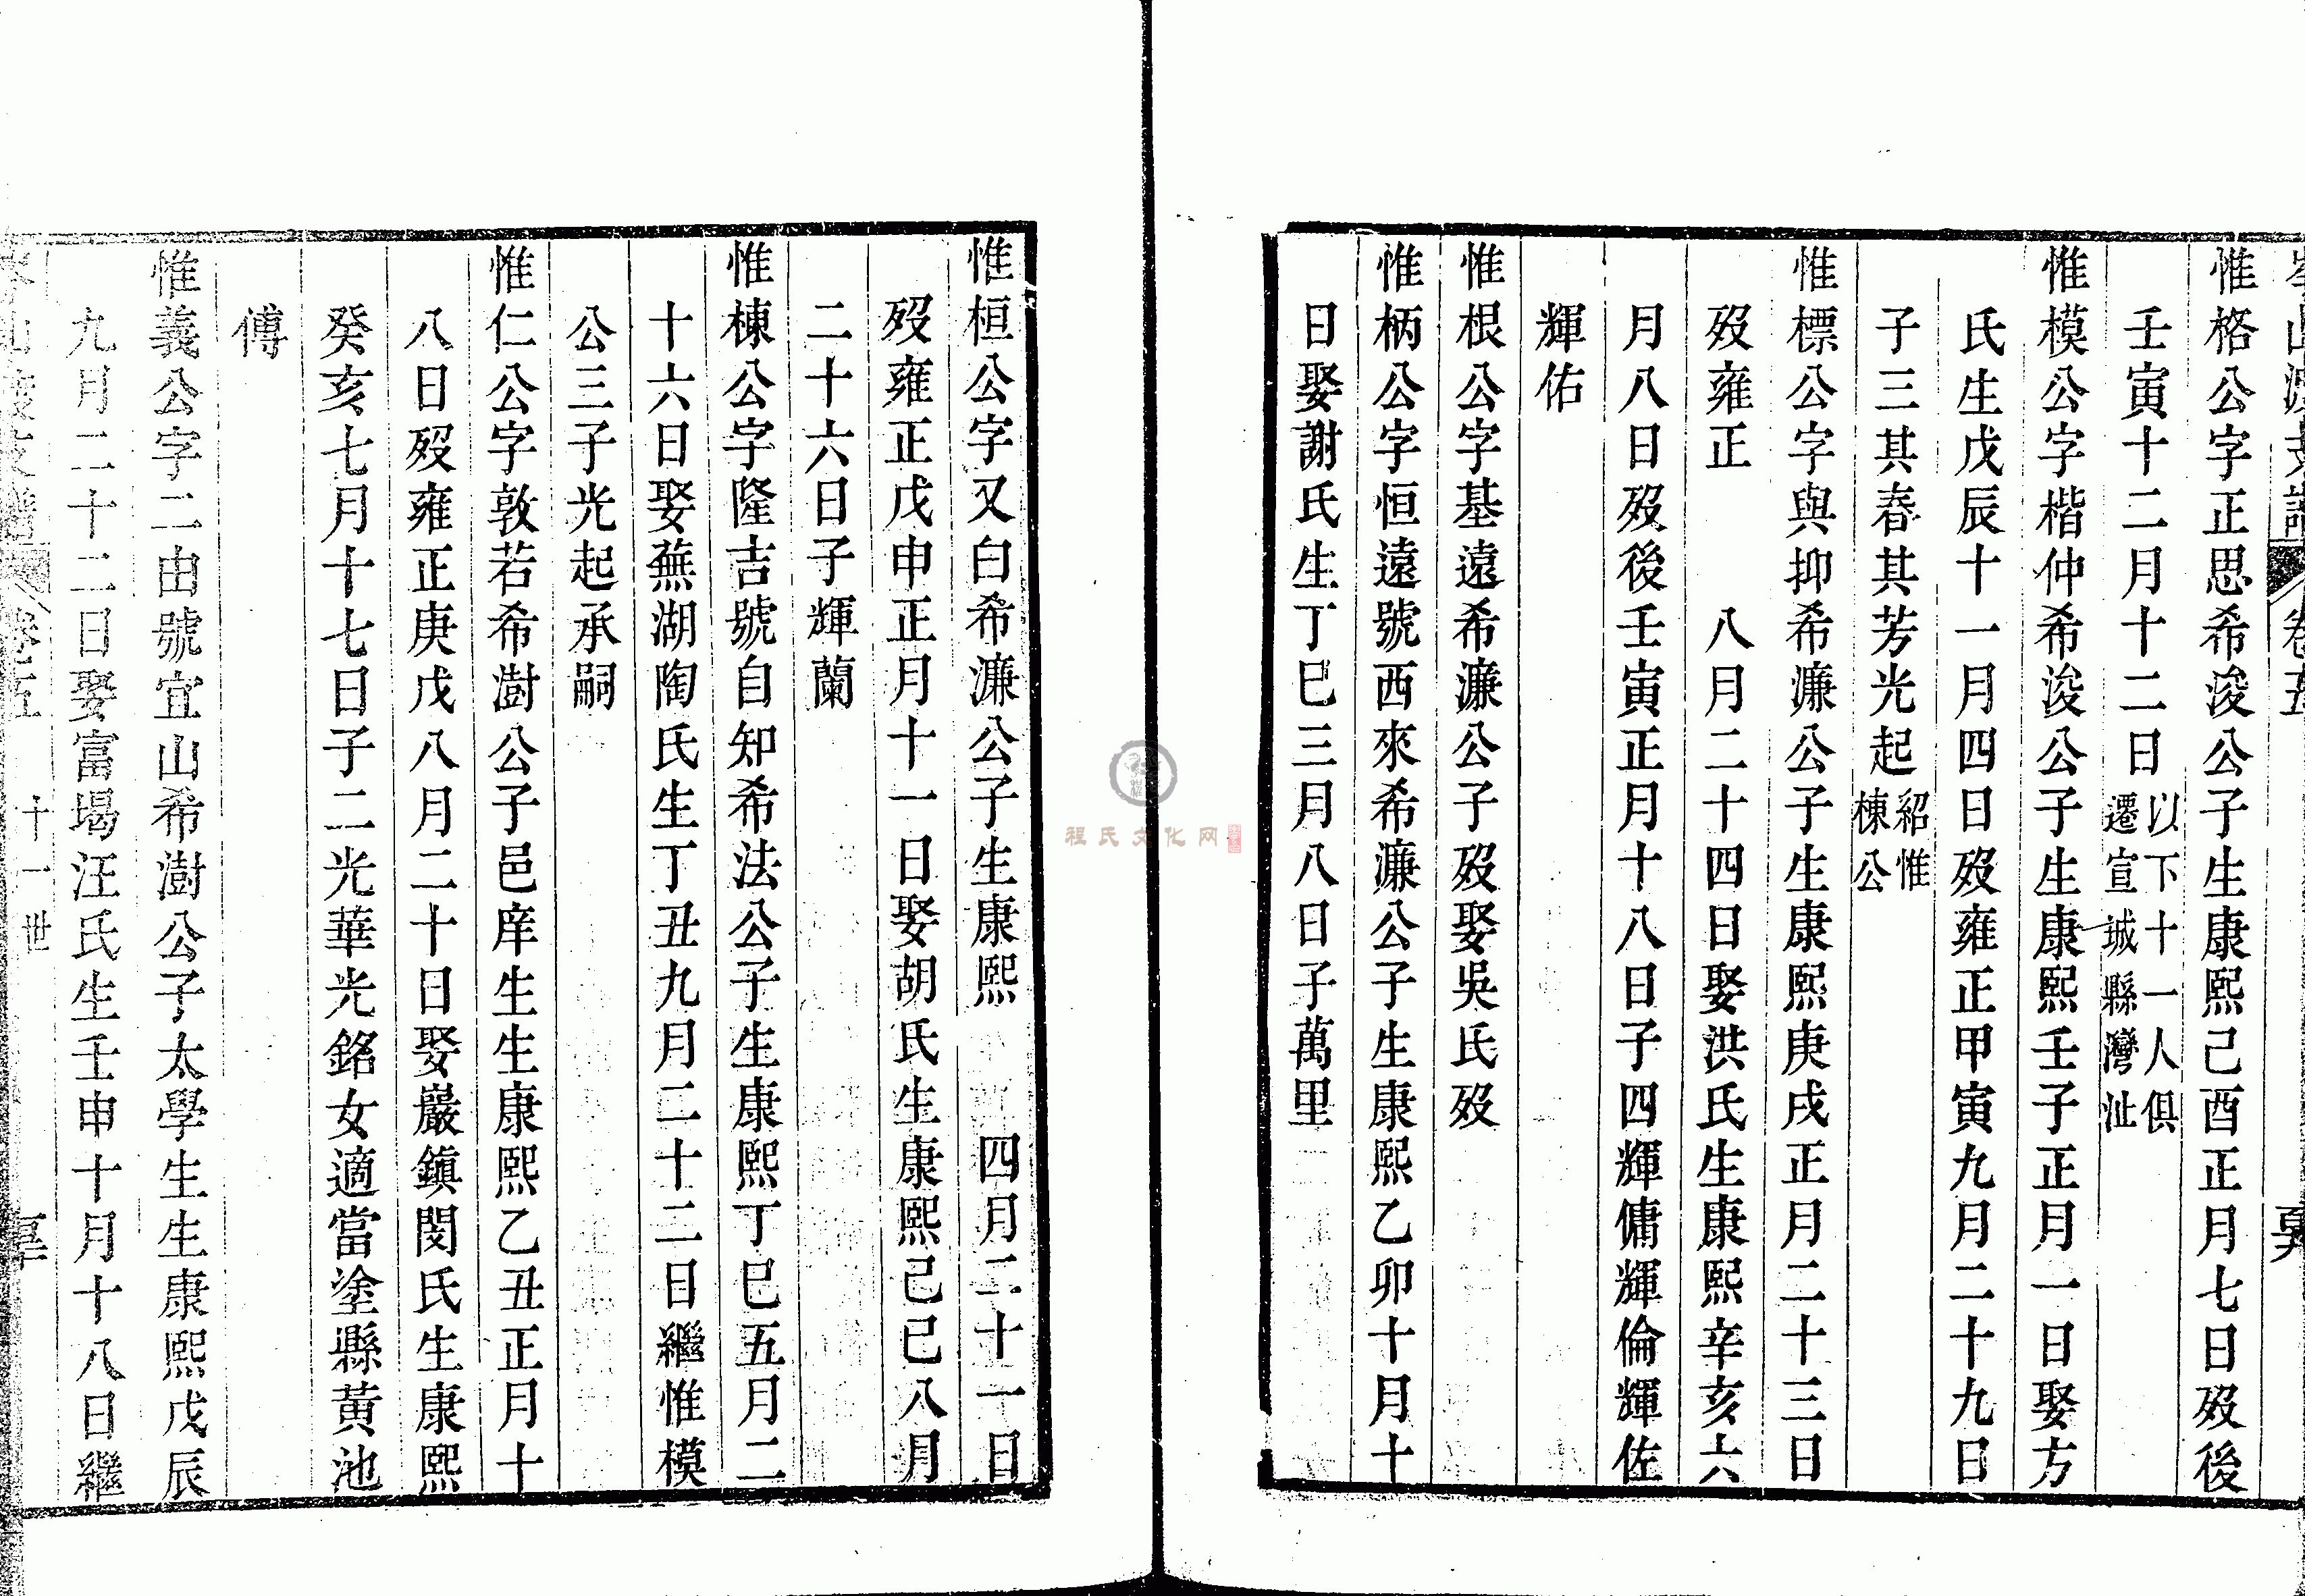 惟格公字正思希浚公子生康熙己酉正月七日歿後
壬寅十二月十二日以下十一人俱遷宣城縣灣沚
惟模公字楷仲希浚公子生康熙壬子正月一日娶方
氏生戊辰十一月四日歿雍正甲寅九月二十九日
子三其春其芳光起紹惟棟公
惟標公字與抑希濂公子生康熙庚戌正月二十三日
歿雍正 八月二十四日娶洪氏生康熙辛亥六
月八日歿後壬寅正月十八日子四輝傭輝倫輝佐
輝佑
惟根公字基遠希濂公子歿娶吳氏歿
惟柄公字恒遠號西來希濂公子生康熙乙卯十月十
日娶謝氏生丁巳三月八日子萬里
惟桓公字又白希濂公子生康熙 四月二十一日
歿雍正戊申正月十一日娶胡氏生康熙己巳八月
二十六日子輝蘭
惟棟公字隆吉號自知希法公子生康熙丁巳五月二
十六日娶蕪湖陶氏生丁丑九月二十二日繼惟模
公三子光起承嗣
惟仁公字敦若希澍公子邑庠生生康熙乙丑正月十
八日歿雍正庚戌八月二十日娶巖鎮閔氏生康熙
癸亥七月十七日子二光華光銘女適當塗縣黃池
傅
惟義公字二由號宜山希澍公子太學生生康熙戊辰
九月二十二日娶富堨汪氏生壬申十月十八日繼
卷五 十一世
程氏文化网